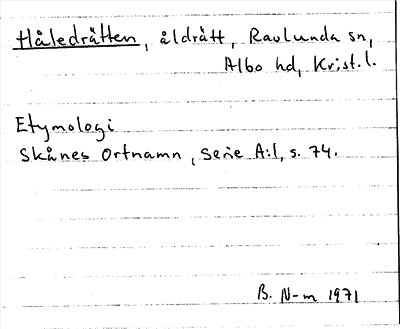 Håledrätten, åldrätt, Ravlunda sn,
Albo hd, Krist. l.
Etymologi
Skånes Ortnamn, serie A:1, s. 74.
B. N-m 1971